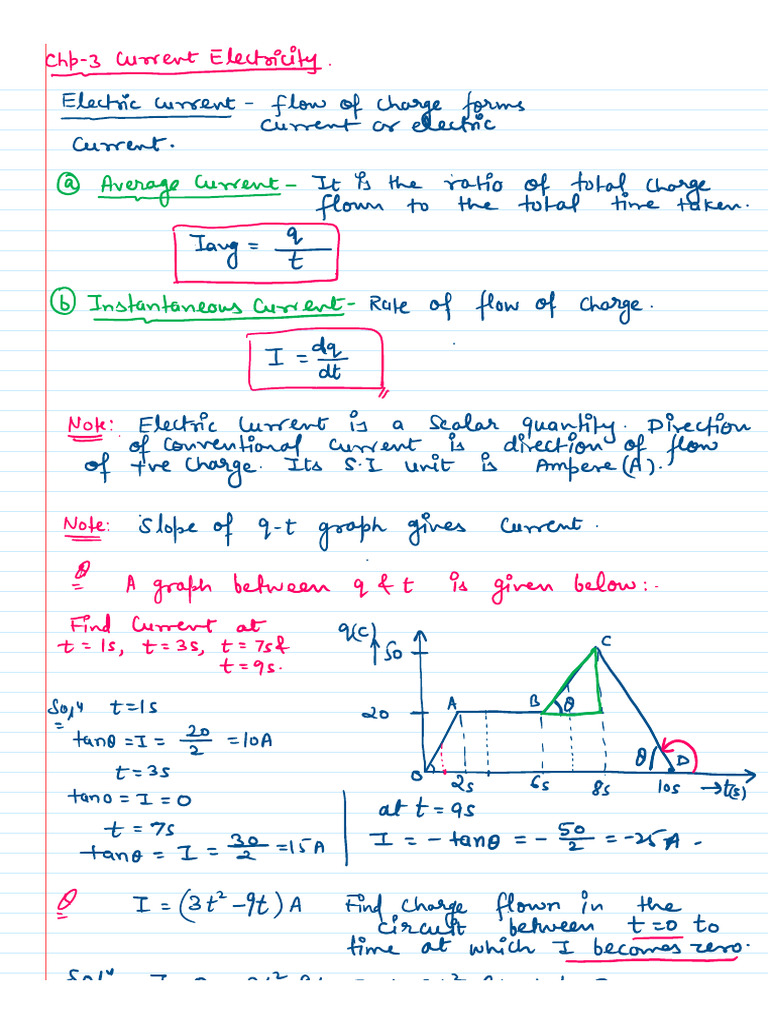 Chp-3 Current Electricity.
Electric current - flow of charge forms
current or electric
current.
(a) Average Current - It is the ratio of total charge
flown to the total time taken.
Iavg = q/t
(b) Instantaneous Current - Rate of flow of charge.
I = dq/dt
Note: Electric current is a scalar quantity. Direction
of conventional current is direction of flow
of +ve charge. Its S.I unit is Ampere (A).
Note: Slope of q-t graph gives current.
Q A graph between q & t is given below:-
Find current at
t = 1s, t = 3s, t = 7s &
t = 9s.
q(C)
50
20
O
A
B
C
D
θ
θ
2s
6s
8s
10s
→t(s)
Solⁿ t = 1s
tanθ = I = 20/2 = 10A
t = 3s
tan0 = I = 0
t = 7s
tanθ = I = 30/2 = 15A
at t = 9s
I = - tanθ = - 50/2 = -25A.
Q I = (3t² - 9t) A Find charge flown in the
circuit between t = 0 to
time at which I becomes zero.
Solⁿ